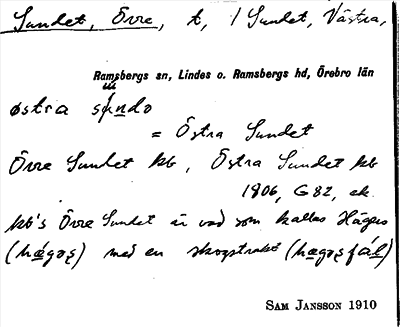 Sundet, Övre, t, / Sundet, Västra,
Ramsbergs sn, Lindes o. Ramsbergs hd, Örebro län
østra sundə
= Östra Sundet
Övre Sundet kb, Östra Sundet kb
1906, G 82, ek.
kb's Övre Sundet är vad som kallas Hägers
med en skogstrakt
SAM JANSSON 1910